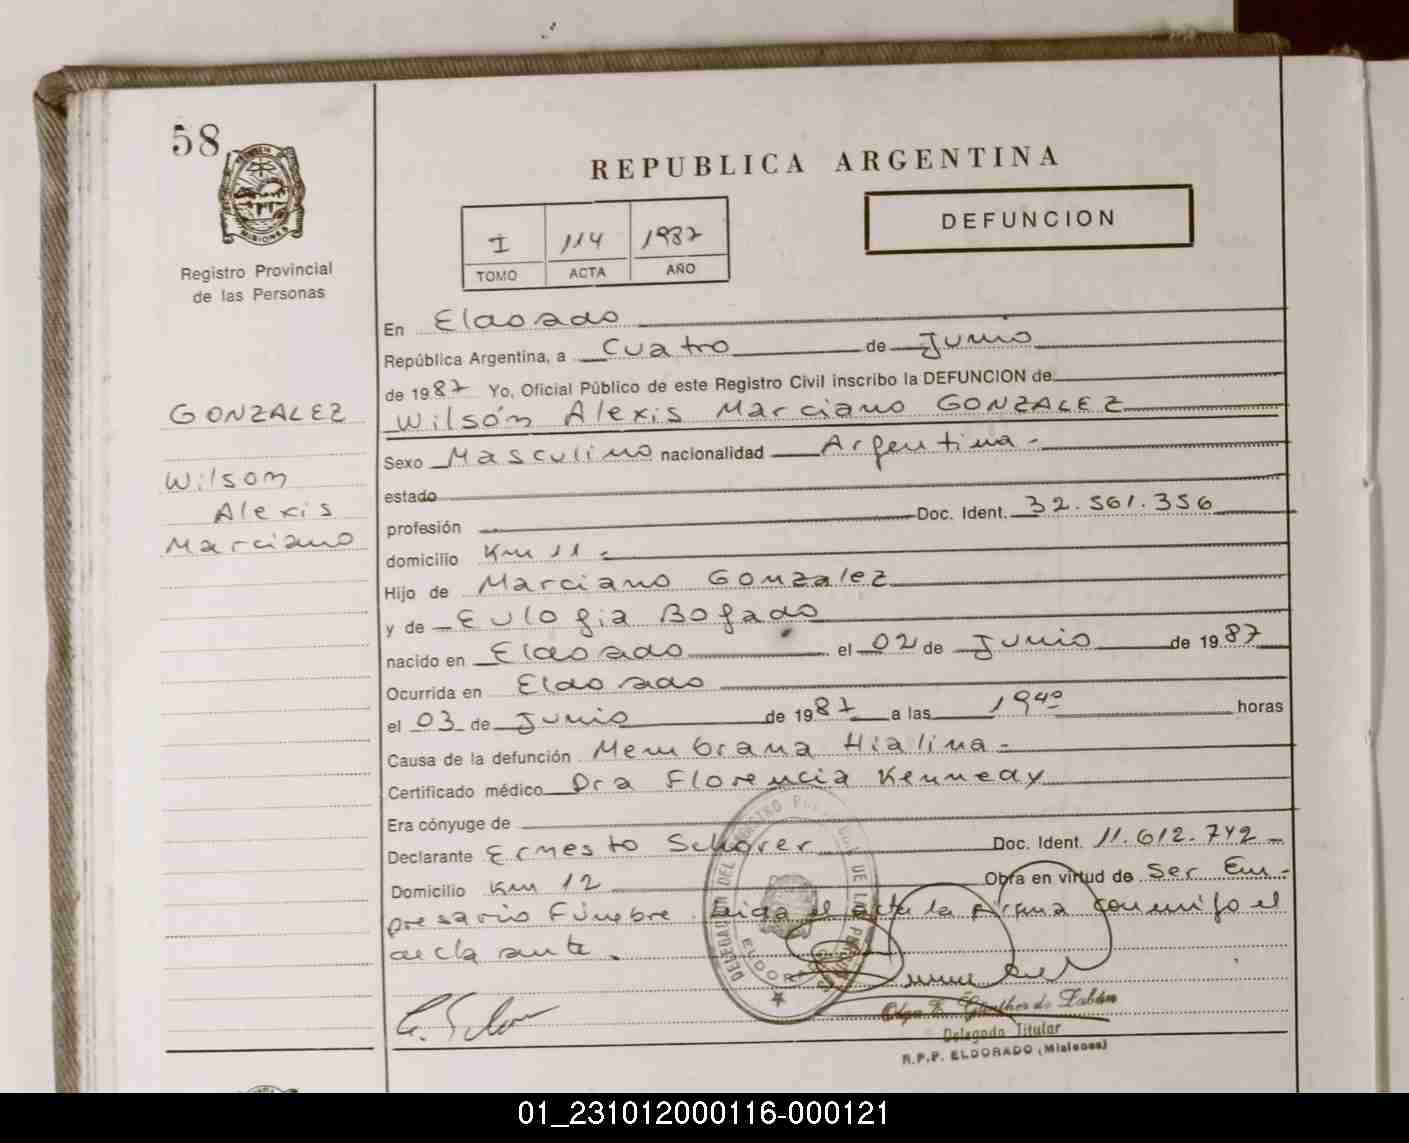 58
MISIONES
Registro Provincial
de las Personas
REPUBLICA ARGENTINA
I 114 1987
TOMO ACTA AÑO
DEFUNCION
En Eldorado
República Argentina, a Cuatro de Junio
de 1987 Yo, Oficial Público de este Registro Civil inscribo la DEFUNCION de
GONZALEZ
Wilsón Alexis Marciano GONZALEZ
Sexo Masculino nacionalidad Argentina -
Wilson
estado
Alexis
profesión Doc. Ident. 32.561.356
Marciano
domicilio Km 11 -
Hijo de Marciano Gonzalez
y de Eulogia Bogado
nacido en Eldorado el 02 de Junio de 1987
Ocurrida en Eldorado
el 03 de Junio de 1987 a las 19 40 horas
Causa de la defunción Membrana Hialina -
Certificado médico Dra Florencia Kennedy
Era cónyuge de
Declarante Ernesto Schorer Doc. Ident. 11.612.742 -
Domicilio Km 12 Obra en virtud de Ser Em-
presario Fúnebre. Leida el acta la firma conmigo el
declarante.
DELEGACION DEL REGISTRO DE LAS
ELDORADO
Olga E. Günther de Labán
Delegada Titular
R.P.P. ELDORADO (Misiones)
01_231012000116-000121